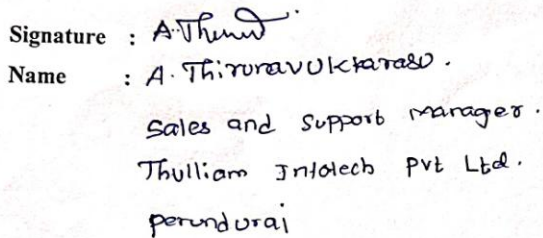 Signature : A.Thiru
Name : A. Thirunavukkarasu.
Sales and Support Manager.
Thulliam Infotech Pvt Ltd.
Perundurai